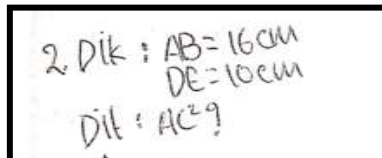 2. Dik : AB = 16 cm
DE = 10 cm
Dit : AC = ?